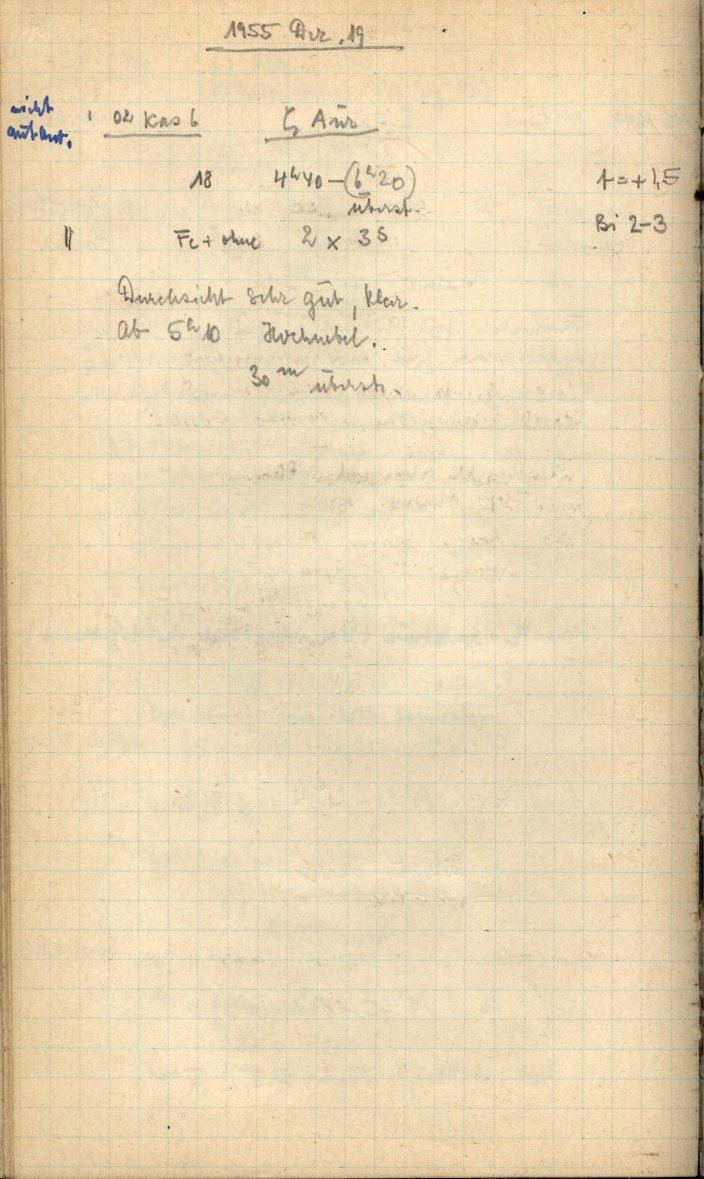 1955 Dez. 19
nicht
' 02 Kas 6 ζ Aur
18 4ʰ40 – (6ʰ20) t = +1,5
überst.
Bi 2–3
|| Fe + ohne 2 x 3ˢ
Durchsicht sehr gut, klar.
Ab 5ʰ10 Hochnebel.
30ᵐ überst.